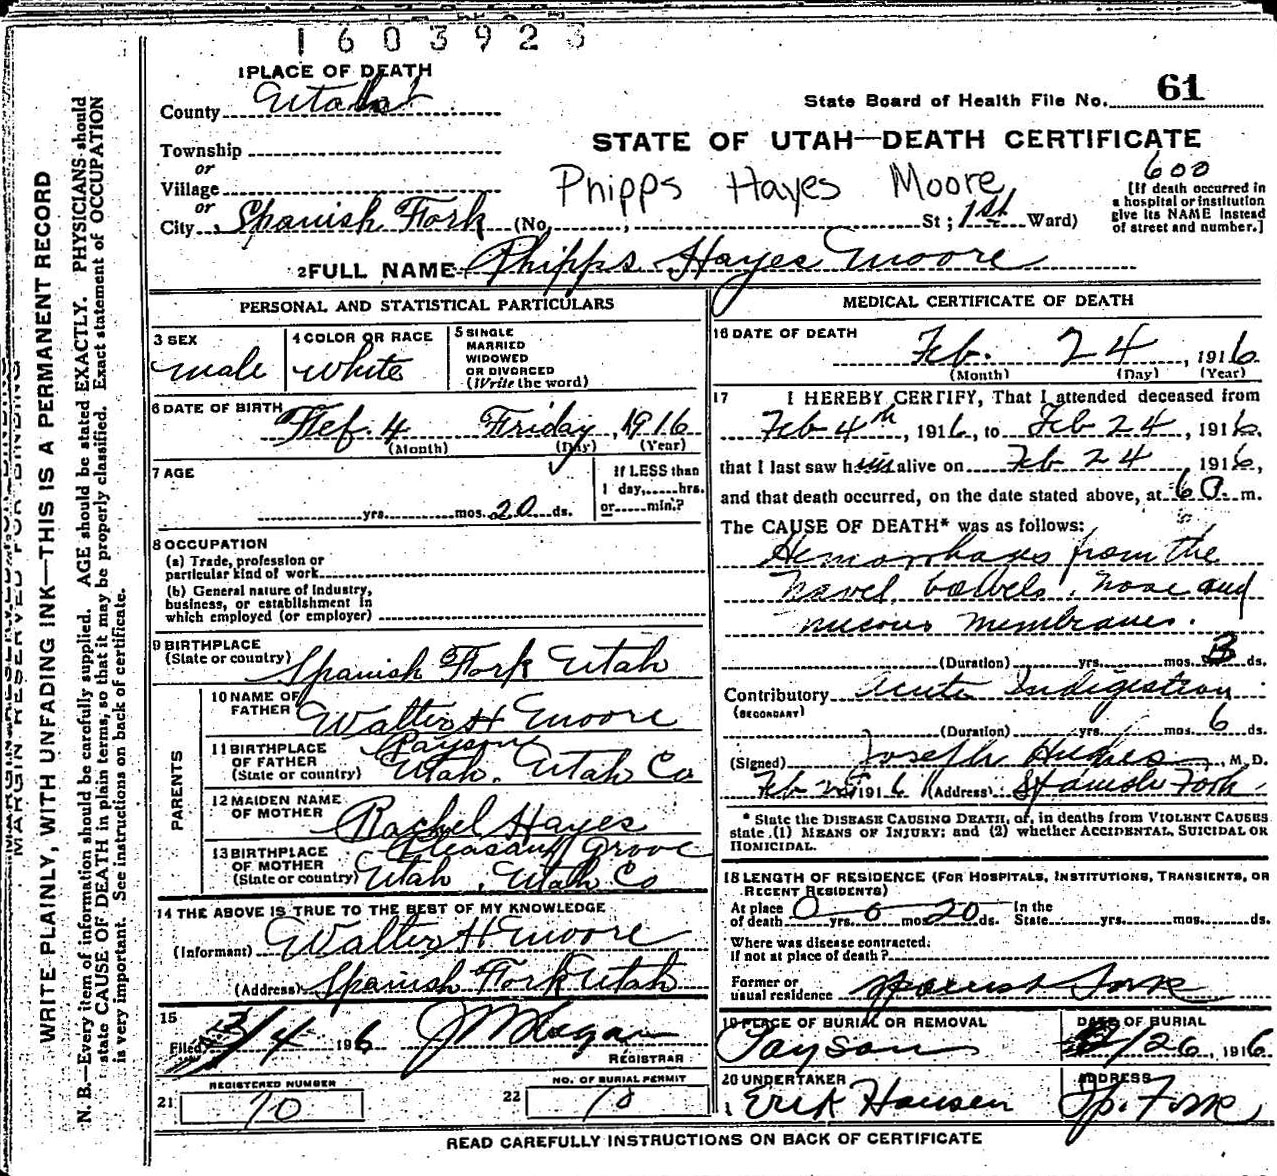 1603923
1 PLACE OF DEATH
County Utah
State Board of Health File No. 61
STATE OF UTAH—DEATH CERTIFICATE
Township
or
Village
or
City Spanish Fork (No. , St ; 1st Ward)
Phipps Hayes Moore
600
[If death occurred in
a hospital or institution
give its NAME instead
of street and number.]
2 FULL NAME Phipps Hayes Moore
PERSONAL AND STATISTICAL PARTICULARS
3 SEX
male
4 COLOR OR RACE
White
5 SINGLE
MARRIED
WIDOWED
OR DIVORCED
(Write the word)
6 DATE OF BIRTH
Feb. 4 Friday, 1916
(Month) (Day) (Year)
7 AGE
yrs. mos. 20 ds.
If LESS than
1 day, hrs.
or min.?
8 OCCUPATION
(a) Trade, profession or
particular kind of work
(b) General nature of Industry,
business, or establishment in
which employed (or employer)
9 BIRTHPLACE
(State or country) Spanish Fork Utah
PARENTS
10 NAME OF
FATHER Walter H Moore
11 BIRTHPLACE
OF FATHER
(State or country)
Payson
Utah, Utah Co
12 MAIDEN NAME
OF MOTHER Rachel Hayes
13 BIRTHPLACE
OF MOTHER
(State or country)
Pleasant Grove
Utah, Utah Co
14 THE ABOVE IS TRUE TO THE BEST OF MY KNOWLEDGE
(Informant) Walter H Moore
(Address) Spanish Fork Utah
15
Filed 3/4 1916
REGISTRAR
REGISTERED NUMBER
21 10
NO. OF BURIAL PERMIT
22 10
MEDICAL CERTIFICATE OF DEATH
16 DATE OF DEATH
Feb. 24, 1916
(Month) (Day) (Year)
17 I HEREBY CERTIFY, That I attended deceased from
Feb 4th, 1916, to Feb 24, 1916,
that I last saw him alive on Feb 24, 1916,
and that death occurred, on the date stated above, at 6 a. m.
The CAUSE OF DEATH* was as follows:
Hemorrhages from the
navel, bowels, nose and
mucous membranes.
(Duration) yrs. mos. 3 ds.
Contributory Acute Indigestion
(SECONDARY)
(Duration) yrs. mos. 6 ds.
(Signed) Joseph Hughes, M. D.
Feb 25 1916 (Address) Spanish Fork
* State the DISEASE CAUSING DEATH, or, in deaths from VIOLENT CAUSES
state (1) MEANS OF INJURY; and (2) whether ACCIDENTAL, SUICIDAL OR
HOMICIDAL.
18 LENGTH OF RESIDENCE (FOR HOSPITALS, INSTITUTIONS, TRANSIENTS, OR
RECENT RESIDENTS)
At place
of death 0 yrs. 0 mos. 20 ds. In the
State yrs. mos. ds.
Where was disease contracted.
If not at place of death?
Former or
usual residence Spanish Fork
19 PLACE OF BURIAL OR REMOVAL
Payson
DATE OF BURIAL
2/26, 1916
20 UNDERTAKER
Erik Hansen
ADDRESS
Sp. Fork
READ CAREFULLY INSTRUCTIONS ON BACK OF CERTIFICATE
MARGIN RESERVED FOR BINDING
WRITE PLAINLY, WITH UNFADING INK—THIS IS A PERMANENT RECORD
N. B.—Every item of information should be carefully supplied. AGE should be stated EXACTLY. PHYSICIANS should
state CAUSE OF DEATH in plain terms, so that it may be properly classified. Exact statement of OCCUPATION
is very important. See instructions on back of certificate.